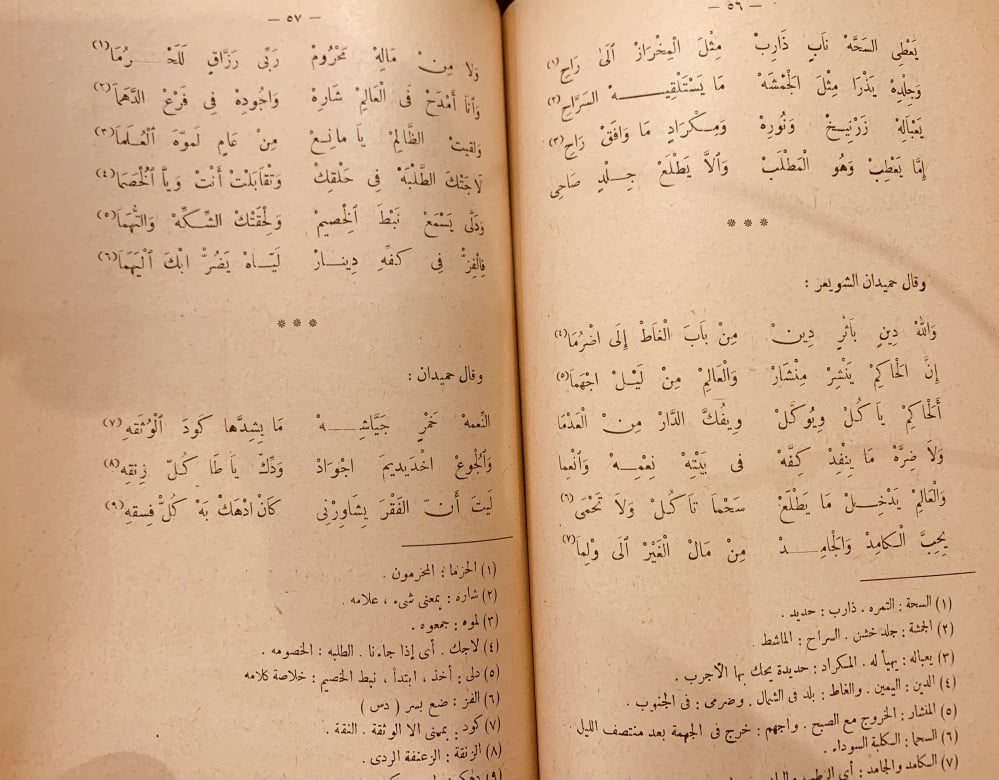 — ٥٦ —
يَعْطِى السَحَّهْ نَابٍ ذَارِبْ مِثْلَ الْمِخْرَازْ الَىٰ رَاحِ(١)
وَجِلْدِهْ يَذْرَا مِثْلَ الْجَمْشَهْ مَا يَسْتَلْقِيــهْ السَرَّاحِ(٢)
يَعْبَالِهْ زَرْنِيخْ وَنُورِهْ وَمِكْرَادٍ مَا وَافَقْ رَاحِ(٣)
إمَّا يَعْطِبْ وَهُو الْمَطْلَبْ وَالَّا يَطْلَعْ جِـلْدٍ صَاحِى
* * *
وقال حميدان الشويعر :
وَاللهْ دِينٍ بَاثْرٍ دِينْ مِنْ بَابَ الْغَاطْ إِلَى اضْرُمَا(٤)
إنَّ الْحَاكِمْ يَنْشِرْ مِنْشَارْ وَالْعَالِمْ مِنْ لَيْـلْ اجْهَمَا(٥)
أَلْحَاكِمْ يَاكُلْ وِيُوكَّلْ وِيفُكَّ الدَّارْ مِنْ الْعَدْمَا
وَلَا ضِرَّهْ مَا يِنْفِدْ كِفَّهْ فى بَيْتِهْ نِعِمِـهْ وَانْعِما
وَالْعَالِمْ يَدْخِـلْ مَا يَطْلَعْ سَحْمَا تَاكُلْ وَلَا تَحْمَى(٦)
يِحِبَّ الـكَامِدْ وَالْجَامِـدْ مِنْ مَالْ الْغَيْرْ الَى وْلِمَا(٧)
(١) السحة : التمره . ذارب : حديد .
(٢) الجمشة : جلد خشن . السراح : الماشط .
(٣) يعباله : يهيأ له . المكراد : حديدة يحك بها الأجرب .
(٤) الدين : اليمين . والغاط : بلد فى الشمال . وضرمى : فى الجنوب .
(٥) المنشار : الخروج مع الصبح . واجهم : خرج فى الجهمة بعد منتصف الليل .
(٦) السحما : الكلبة السوداء .
(٧) الكامد والجامد : أى
— ٥٧ —
وَلا مِنْ مَالِهْ مَحْرُومْ رَبِّى رَزَّاقٍ لَلْحَـرُمَا(١)
وَأنَا أَمْدَحْ فى الْعَالِمْ شَارِهْ وَاجُودِهْ فى فَرْعْ الدَّهَما(٢)
وَاقيت الظَّالِمْ يَا مانِـعْ مِنْ عَامٍ لَموّهْ الْعُـلَما(٣)
لَاجَتْكَ الطَّلْبَهْ فِى حَلْقِكْ وَتْقَابَلْتْ أَنْتْ وَيَّا الْخُصَمَا(٤)
وَدَلَّى يَسْمَعْ نَبْطَ الْخِصيمْ وَلْحَقَتْكْ الشِّكَّهْ وَالتُّهَمَا(٥)
فِالْفِزّْ فِى كَفِّهِ دِينـارْ لَيَـاهْ يَضُرّْ ابْكَ الْيَهَمَا(٦)
* * *
وقال حميدان :
النِّعْمِهْ خَمْرٍ جَيَّاشِـهْ مَا يِشِدَّهَا كَودَ الْوُثَقِهِ(٧)
وَالْجُوعْ اخْدَيدِيمَ اجْوَادْ وَدِّكْ يَا طَا كُلّْ زِنِقِهِ(٨)
لَيتَ أَنَّ الفَقْرَ يِشَاوِرْنِى كَانْ ادْهَكْ بَهْ كُلّْ فِسِقِهِ(٩)
(١) الحزما : المخرمون .
(٢) شاره : بمعنى شىء ، علامه .
(٣) لموه : جمعوه .
(٤) لاجك . أى إذا جاءنا . الطلبه : الخصومه .
(٥) دلى : أخذ ، ابتدأ ، نبط الخصيم : خلاصة كلامه
(٦) الفز : ضع بسر ( دس )
(٧) كود : بمعنى الا الوثقة . الثقة .
(٨) الزنقة : الزعنفة الردى .